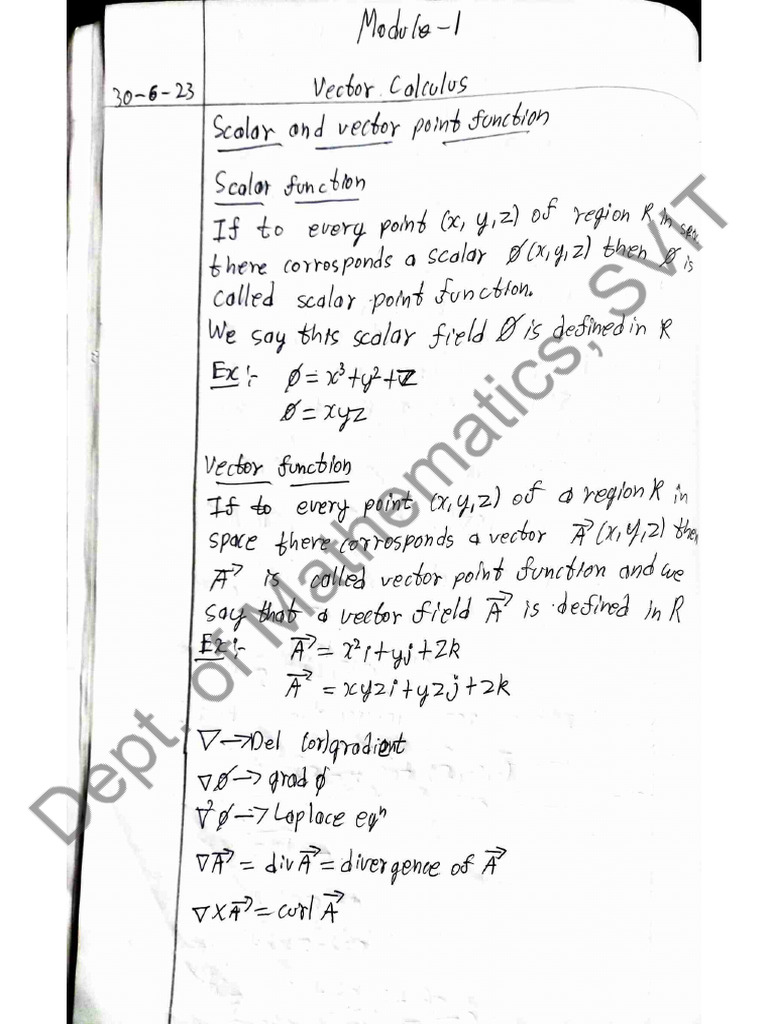 Module-1
30-6-23
Vector Calculus
Scalar and vector point function
Scalar function
If to every point (x, y, z) of region R in
there corrosponds a scalar Ø(x,y,z) then Ø is
called scalar point function.
We say this scalar field Ø is defined in R
Ex:- Ø = x³+y²+z
Ø = xyz
Vector function
If to every point (x,y,z) of a region R in
space there corrosponds a vector A⃗ (x,y,z) then
A⃗ is called vector point function and we
say that a vector field A⃗ is defined in R
Ex:- A⃗ = x²i+yj+zk
A⃗ = xyzi+yzj+zk
∇→Del (or)gradient
∇Ø→grad Ø
∇²Ø→Laplace eqⁿ
∇A⃗ = div A⃗ = divergence of A⃗
∇×A⃗ = curl A⃗
Dept. of Mathematics, SVIT